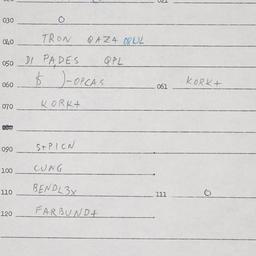 030 O
040 TRON QAZ4
050 DI PADES QPL
060 )-OPCAS 061 KORK+
070 KORK+
090 S+PICN
100 CUNG
110 BENDL3X 111 O
120 FARBUND+